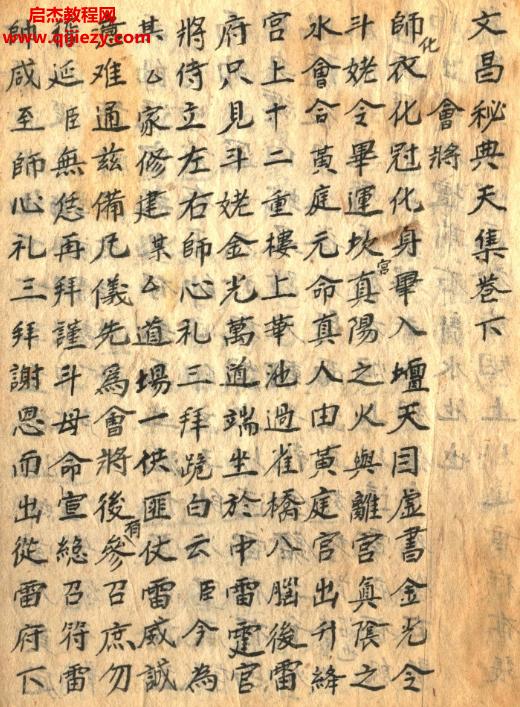 启杰教育网
www.qijiezy.com
文昌秘典天集卷下
會將
師衣化冠化身畢入壇天目虛書金光令
化
斗姥令畢運坎宮真陽之火與離宮真陰之
水會合黃庭元命真人由黃庭宮出升絳
宮上十二重樓上華池過雀橋八腦後雷
府只見斗姥金光萬道端坐於中雷霆官
將侍立左右師心礼三拜跪白云臣今為
某公家修建某公道場一供匪仗雷威誠
難通兹備凡儀先為會將後有參召庶勿
延臣無恁再拜謹斗母命宣總召符雷
師咸至師心礼三拜謝恩而出從雷府下